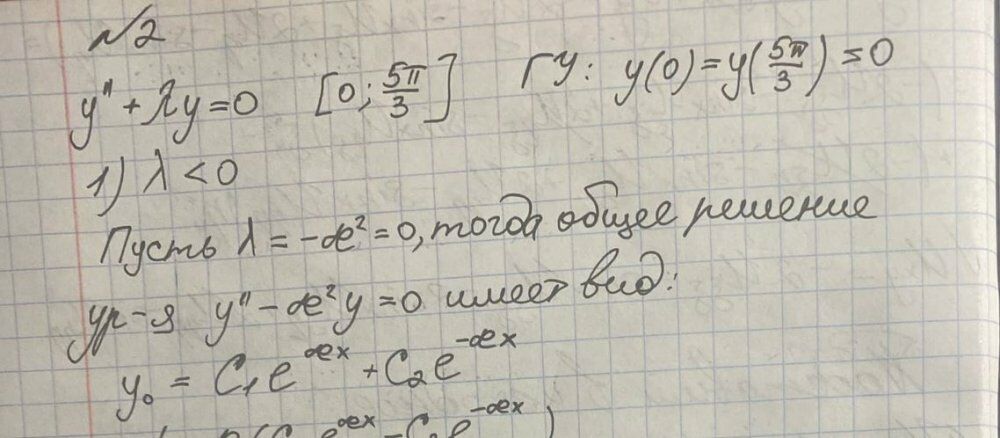 №2
y'' + λy = 0 [0; 5π/3] ГУ: y(0) = y(5π/3) = 0
1) λ < 0
Пусть λ = -æ² = 0, тогда общее решение
ур-я y'' - æ²y = 0 имеет вид:
y₀ = C₁e^æx + C₂e^-æx